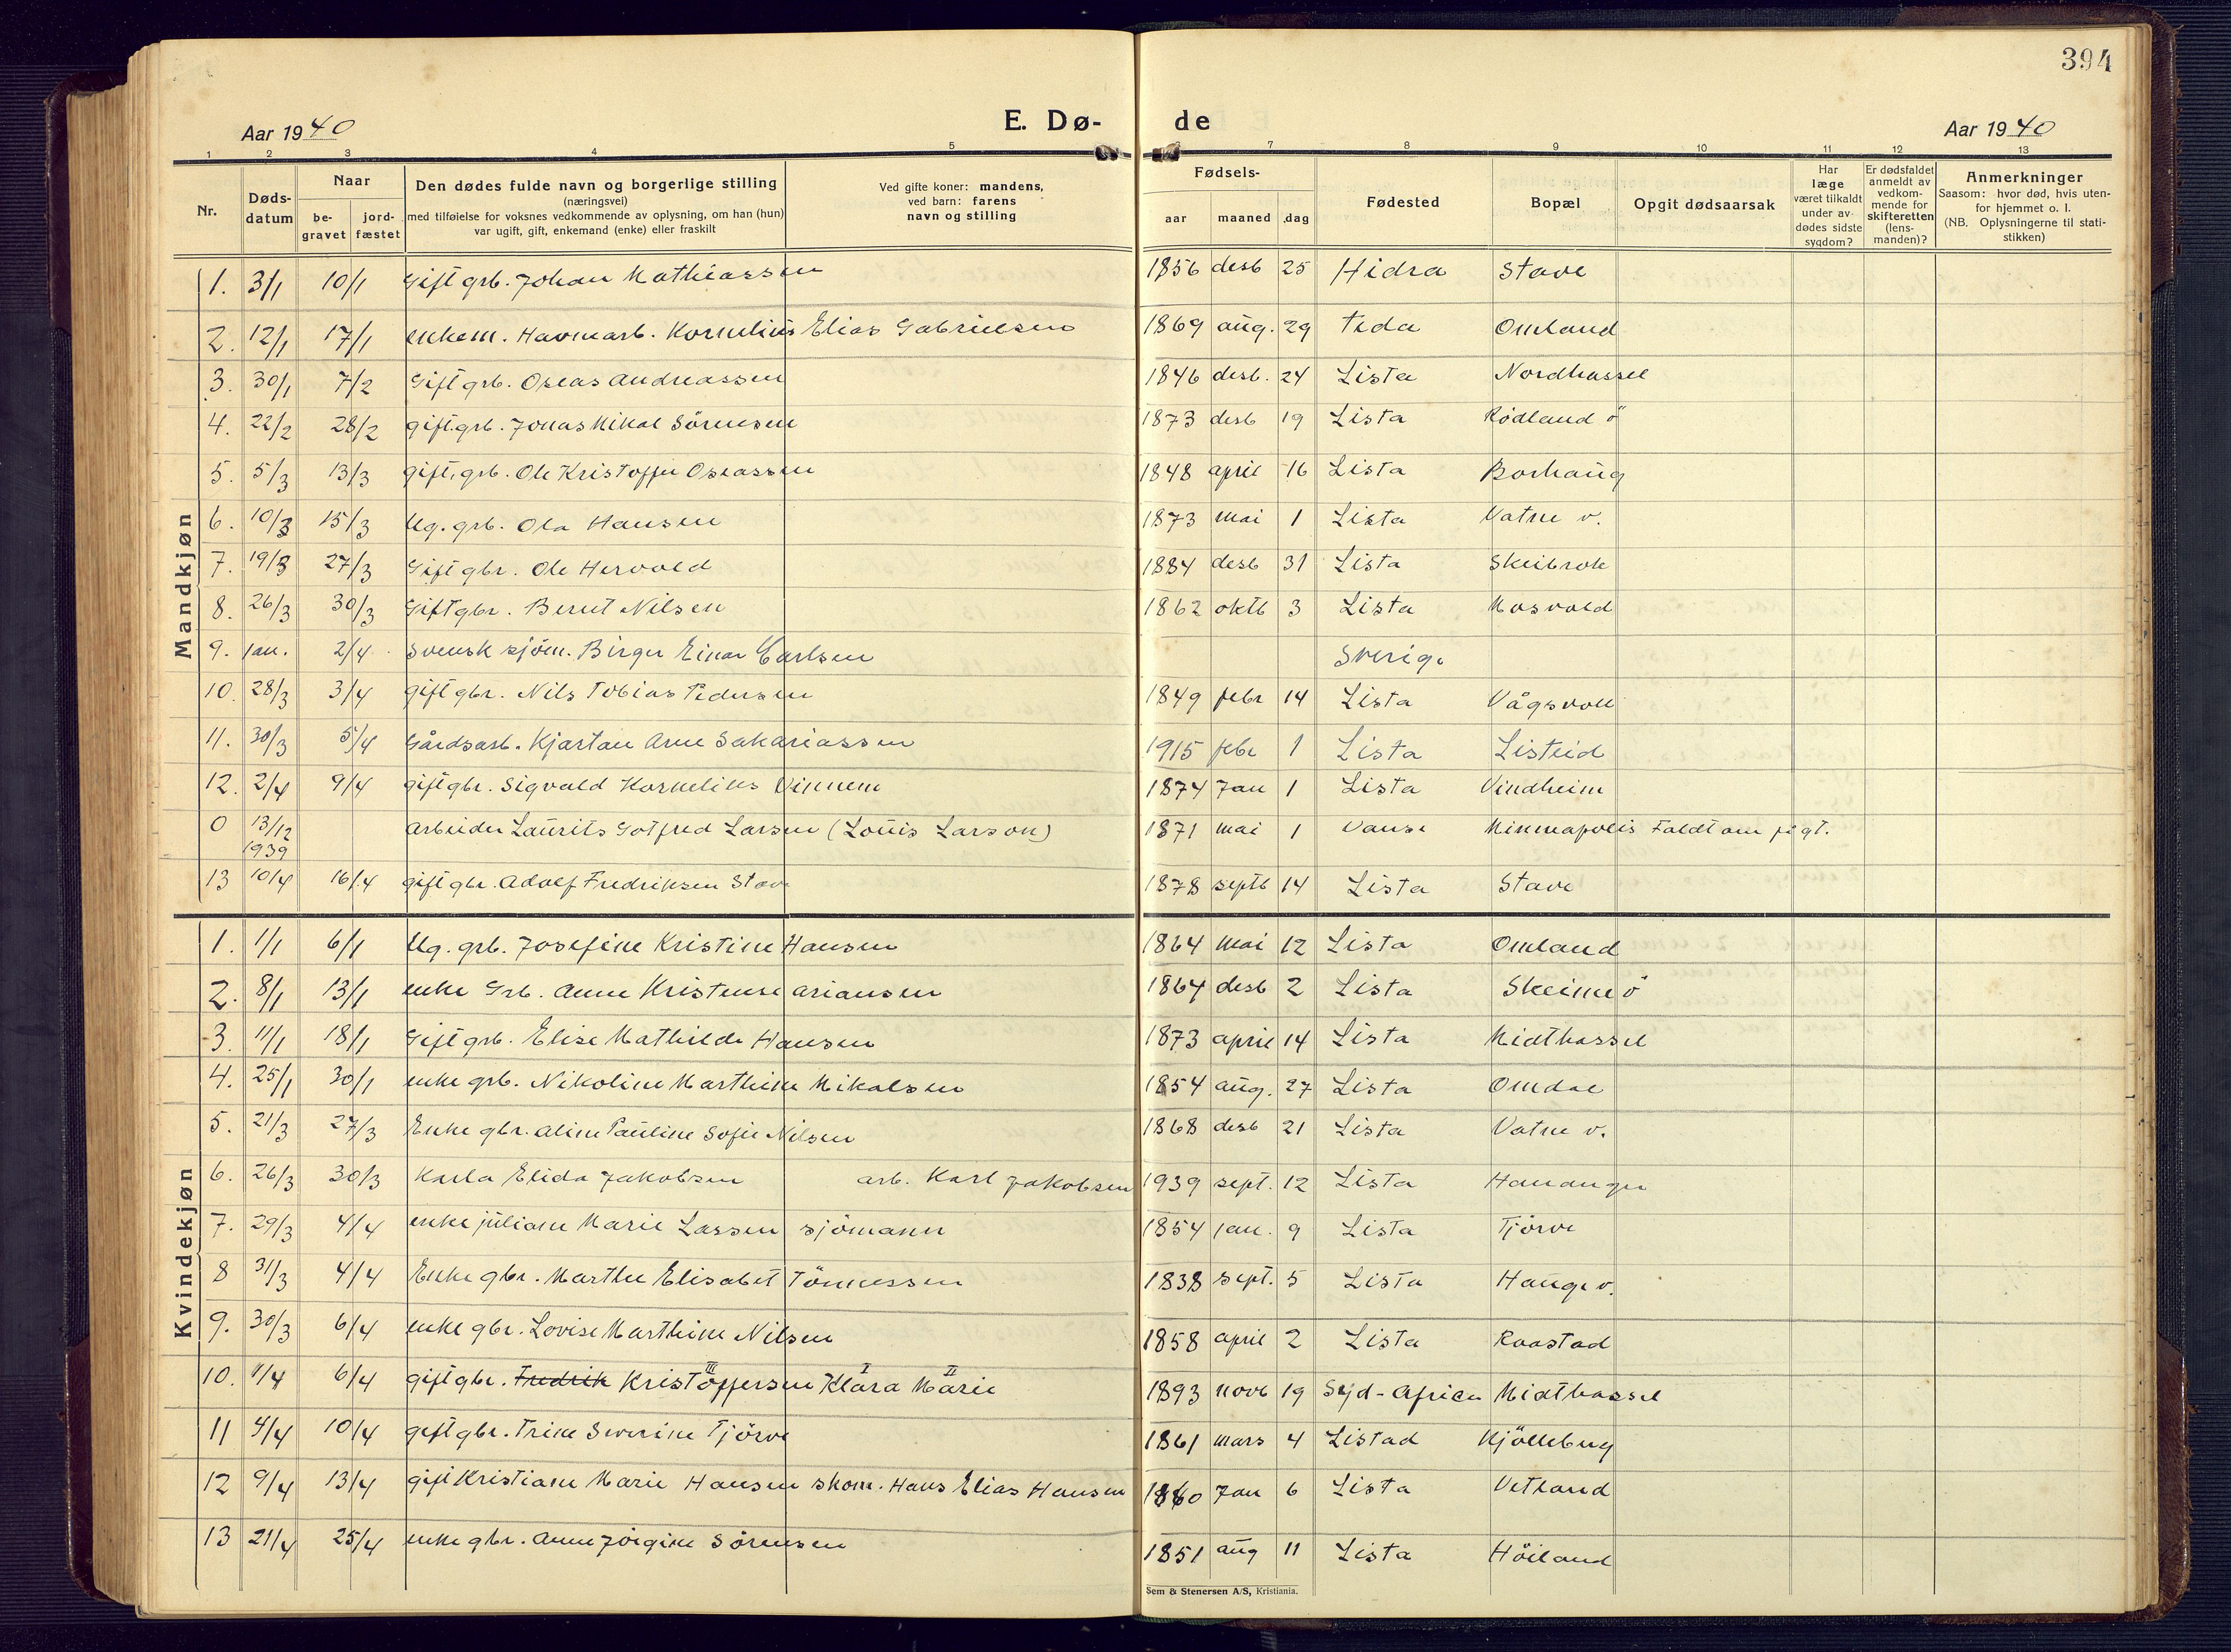 394
Aar 1940 E. Dø- de Aar 1940
1 2 3 4 5 6 7 8 9 10 11 12 13
Nr. Døds-datum Naar be-gravet jord-fæstet Den dødes fulde navn og borgerlige stilling (næringsvei) med tilføielse for voksnes vedkommende av oplysning, om han (hun) var ugift, gift, enkemand (enke) eller fraskilt Ved gifte koner: mandens, ved barn: farens navn og stilling Fødsels- aar maaned dag Fødested Bopæl Opgit dødsaarsak Har læge været tilkaldt under av-dødes sidste sygdom? Er dødsfaldet anmeldt av vedkom-mende for skifteretten (lens-manden)? Anmerkninger Saasom: hvor død, hvis uten-for hjemmet o. l. (NB. Oplysningerne til stati-stikken)
Mandkjøn
1. 3/1 10/1 Gift grb. Johan Mathiassen 1856 desb 25 Hidra Stave
2. 12/1 17/1 enkem. Havnarb. Kornelius Elias Gabrielsen 1869 aug. 29 Omland
3. 30/1 7/2 Gift grb. Oseas Andreassen 1846 desb. 24 Lista Nordhassel
4. 22/2 28/2 gift.grb. Jonas Mikal Sörensen 1873 desb 19 Lista Rødland ö
5. 5/3 13/3 gift, grb. Ole Kristoffer Oseassen 1848 april 16 Lista Borhaug
6. 10/3 15/3 Ug. grb. Ola Hansen 1873 mai 1 Lista Vatne v.
7. 19/3 27/3 Gift gbr. Ole Hervold 1884 desb 31 Lista Skeibrok
8. 26/3 30/3 Gift gbr. Bernt Nilsen 1862 oktb 3 Lista Mosvold
9. jan. 2/4 svensk sjöm. Birger Einar Carlsen Sverige
10. 28/3 3/4 gift gbr. Nils Tobias Pedersen 1849 febr 14 Lista Vågsvoll
11. 30/3 5/4 Gårdsarb. Kjartan Arne Sakariassen 1915 febr 1 Lista Listeid
12. 2/4 9/4 gift gbr. Sigvald Kornelius Vinnem 1874 Jan 1 Lista Vindheim
0 13/12 1939 arbeider Laurits Gotfred Larsen (Louis Larson) 1871 mai 1 Vanse Minneapolis Faldt om
13 10/4 16/4 gift gbr. Adolf Fredriksen Stave 1878 septb 14 Lista Stave
Kvindekjøn
1. 1/1 6/1 Ug. grb. Josefine Kristine Hansen 1864 mai 12 Lista Omland
2. 8/1 13/1 enke Grb. Anne Kristense ariansen 1864 desb 2 Lista Skeime ö
3. 11/1 18/1 Gift grb. Elise Mathilde Hansen 1873 april 14 Lista Midthassel
4. 25/1 30/1 enke grb. Nikoline Marthine Mikalsen 1854 aug. 27 Lista Omdal
5. 21/3 27/3 Enke gbr. Aline Pauline Sofie Nilsen 1868 desb 21 Lista Vatne v.
6. 26/3 30/3 Karla Elida Jakobsen arb. Karl Jakobsen 1939 sept. 12 Lista Hananger
7. 29/3 4/4 enke juliane Marie Lassen sjömann 1854 jan. 9 Lista Tjörve
8 31/3 4/4 Enke gbr. Marthe Elisabet Tönnessen 1838 sept. 5 Lista Hauge v.
9. 30/3 6/4 enke gbr. Lovise Marthine Nilsen 1858 april 2 Lista Raastad
10. 1/4 6/4 gift gbr. Fredrik Kristoffersen III Klara I Marie II 1893 novb 19 Syd-Africa Midthassel
11 4/4 10/4 gift gbr. Trine Severine Tjörve 1861 mars 4 Listad Kjölleberg
12 9/4 13/4 gift Kristiane Marie Hansen skom. Hans Elias Hansen Jan 6 Lista Vetland
13 21/4 25/4 enke gbr. Anne Jörgine Sörensen 1851 aug 11 Lista Höiland
Sem & Stenersen A/S, Kristiania.